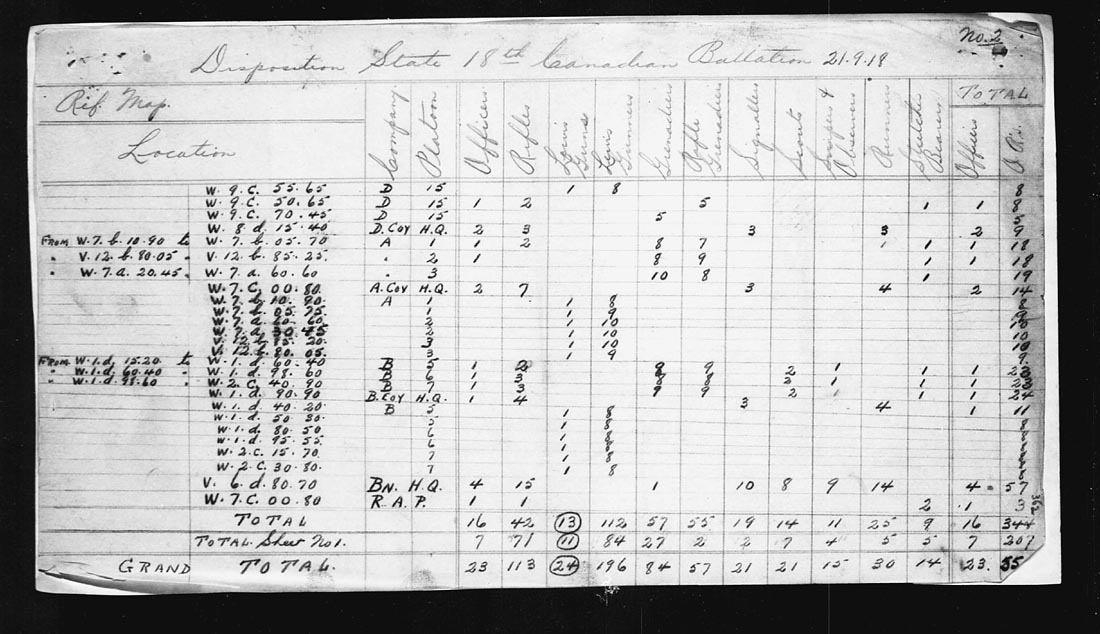 No. 2
Disposition State 18th Canadian Battation 21.9.18
Rif. Map. Company Platoon Officers Rifles Lewis Guns Lewis Gunners Grenadiers Rifle Grenadiers Signallers Scouts Snipers & Observers Runners Stretcher Bearers TOTAL Officers O.R.
Location
W. 9. C. 55.65 D 15 1 8 8
W. 9. C. 50.65 D 15 1 2 5 1 1 8
W. 9. C. 70.45 D 15 5 5
W. 8 d. 15.40 D. Coy H.Q. 2 3 3 3 2 9
From W. 7. b. 10.90 to W. 7. b. 05.70 A 1 1 2 8 7 1 1 18
" V. 12. b. 80.05 " V. 12. b. 85.25 " 2 1 8 9 1 1 18
" W. 7. a. 20.45 " W. 7. a. 60.60 " 3 10 8 1 19
W. 7. C. 00.80. A. Coy H.Q. 2 7 3 4 2 14
W. 7. b. 10.90. A 1 1 8 8
W. 7. b. 05.75 1 1 9
W. 7. a. 60.60 2 1 10 10
2 1 10 10
3 1 10 10
V. 12. b. 80.05. 3 1 9 9
From W. 1. d. 15.20 to W. 1. d. 60.40 B 5 1 2 8 9 2 1 1 1 23
" W. 1. d. 60.40 " W. 1. d. 98.60 B 6 1 3 2 1 1 1 23
" W. 1. d. 98.60 " W. 2. C. 40.90 B 7 1 3 9 9 2 1 1 1 24
W. 1. d. 90.90 B. Coy H.Q. 1 4 3 4 1 11
W. 1. d. 40.20 B 5 1 8
W. 1. d. 50.30 5 1 8
W. 1. d. 80.50 6 1 8
W. 1. d. 95.55 6 1 8
W. 2. C. 15.70 7 1 8
W. 2. C. 30.80. 7 1 8
V. 6. d. 80.70 BN. H.Q. 4 15 1 10 8 9 14 4 57
W. 7. C. 00.80 R. A. P. 1 1 2 1 3
362
TOTAL 16 42 13 112 57 55 19 14 11 25 9 16 344
TOTAL Sheet No 1. 7 71 11 84 27 2 2 7 4 5 5 7 207
GRAND TOTAL. 23 113 24 196 84 57 21 21 15 30 14 23. 55